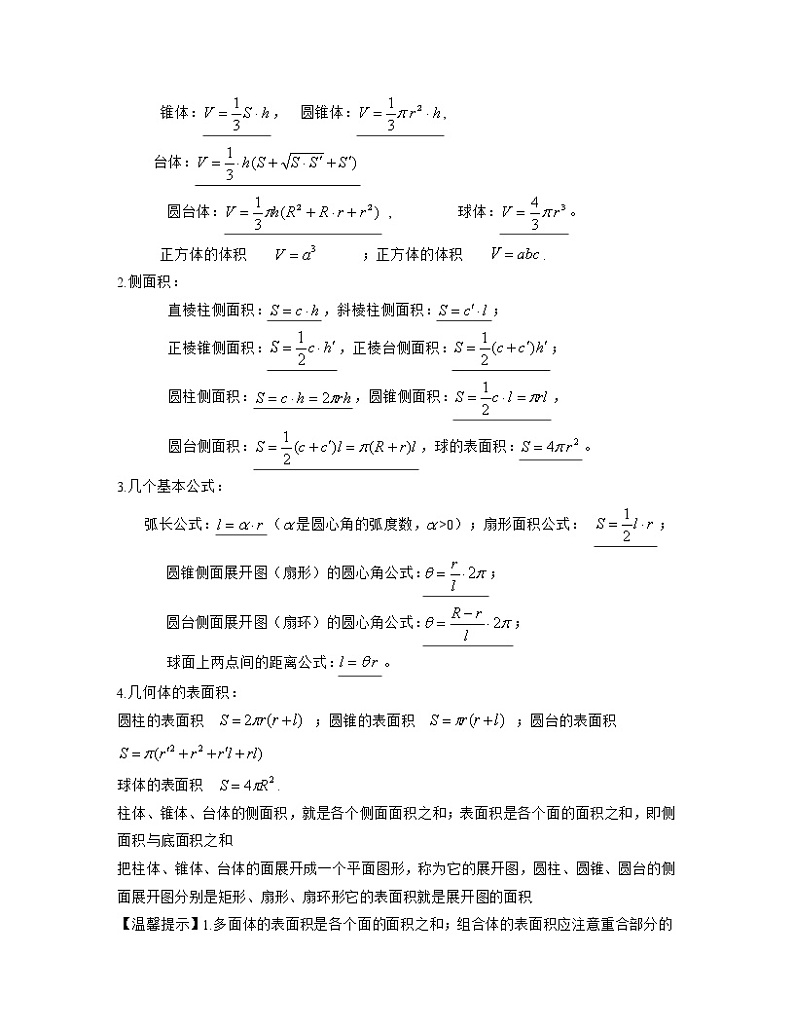 锥体:V=1/3 S·h, 圆锥体:V=1/3 πr²·h,
台体:V=1/3·h(S+√(S·S′)+S′)
圆台体:V=1/3 πh(R²+R·r+r²) , 球体:V=4/3 πr³。
正方体的体积 V=a³ ;正方体的体积 V=abc.
2.侧面积:
直棱柱侧面积:S=c·h,斜棱柱侧面积:S=c′·l;
正棱锥侧面积:S=1/2 c·h′,正棱台侧面积:S=1/2(c+c′)h′;
圆柱侧面积:S=c·h=2πrh,圆锥侧面积:S=1/2 c·l=πrl,
圆台侧面积:S=1/2(c+c′)l=π(R+r)l,球的表面积:S=4πr²。
3.几个基本公式:
弧长公式:l=α·r(α是圆心角的弧度数,α>0);扇形面积公式: S=1/2 l·r;
圆锥侧面展开图(扇形)的圆心角公式:θ=r/l·2π;
圆台侧面展开图(扇环)的圆心角公式:θ=(R−r)/l·2π;
球面上两点间的距离公式:l=θr。
4.几何体的表面积:
圆柱的表面积 S=2πr(r+l) ;圆锥的表面积 S=πr(r+l) ;圆台的表面积
S=π(r′²+r²+r′l+rl)
球体的表面积 S=4πR².
柱体、锥体、台体的侧面积,就是各个侧面面积之和;表面积是各个面的面积之和,即侧
面积与底面积之和
把柱体、锥体、台体的面展开成一个平面图形,称为它的展开图,圆柱、圆锥、圆台的侧
面展开图分别是矩形、扇形、扇环形它的表面积就是展开图的面积
【温馨提示】1.多面体的表面积是各个面的面积之和;组合体的表面积应注意重合部分的